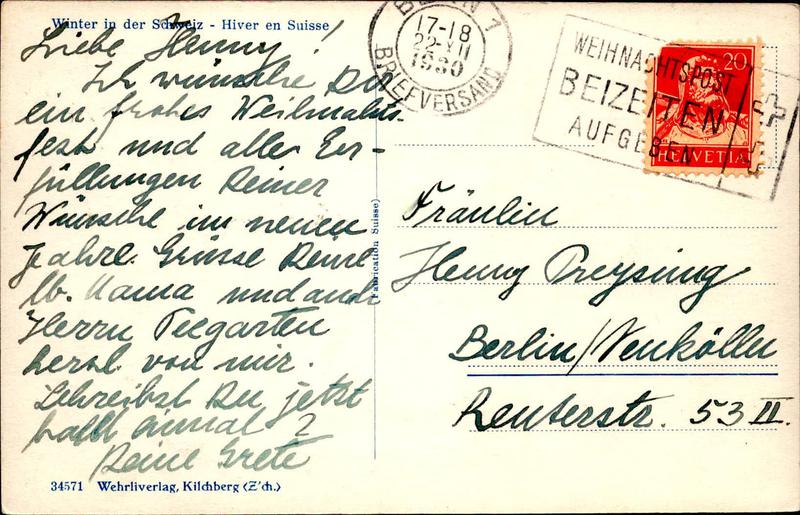 Winter in der Schweiz - Hiver en Suisse
Liebe Henny!
Ich wünsche Dir
ein frohes Weihnachts-
fest und aller Er-
füllungen Deiner
Wünsche im neuen
Jahre. Grüsse Deine
lb. Mama und auch
Herrn Teegarten
herzl. von mir.
Schreibst Du jetzt
bald einmal?
Deine Grete
34571 Wehrliverlag, Kilchberg (Z'ch.)
(Fabrication Suisse)
BERN 1
17-18
22·XII
1930
BRIEFVERSAND
WEIHNACHTSPOST
BEIZEITEN
AUFGEBEN
20
HELVETIA
Fräulein
Henny Preysing
Berlin/Neukölln
Reuterstr. 53 II.